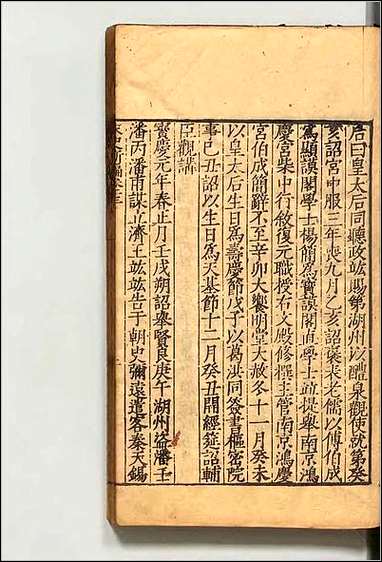 后曰皇太后同聽政竑賜第湖州以醴泉觀使就第癸
亥詔宮中服三年喪九月乙亥詔褒表老儒以傅伯成
爲顯謨閣學士楊簡爲寶謨閣直學士竝提舉南京鴻
慶宮柴中行敘復元職授右文殿修撰主管南京鴻慶
宮伯成簡辭不至辛卯大饗明堂大赦冬十一月癸未
以皇太后生日爲壽慶節戊子以葛洪同簽書樞密院
事己丑詔以生日爲天基節十二月癸丑開經筵詔輔
臣觀講
寶慶元年春正月壬戌朔詔舉賢良庚午湖州盜潘壬
潘丙潘甫謀立濟王竑竑告于朝史彌遠遣客秦天錫
宋史新編卷十三